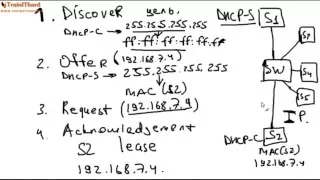 TrainIThard
1. Discover цель,
DHCP-C 255.255.255.255
ff:ff:ff:ff:ff:ff
2. Offer (192.168.7.4)
DHCP-S 255.255.255.255
MAC(S2)
3. Request (192.168.7.4)
4. Acknowledgement
S2 lease
192.168.7.4.
DHCP-S S1
S3
SW
S4
S5
IP.
DHCP-C S2
MAC(S2)
192.168.7.4